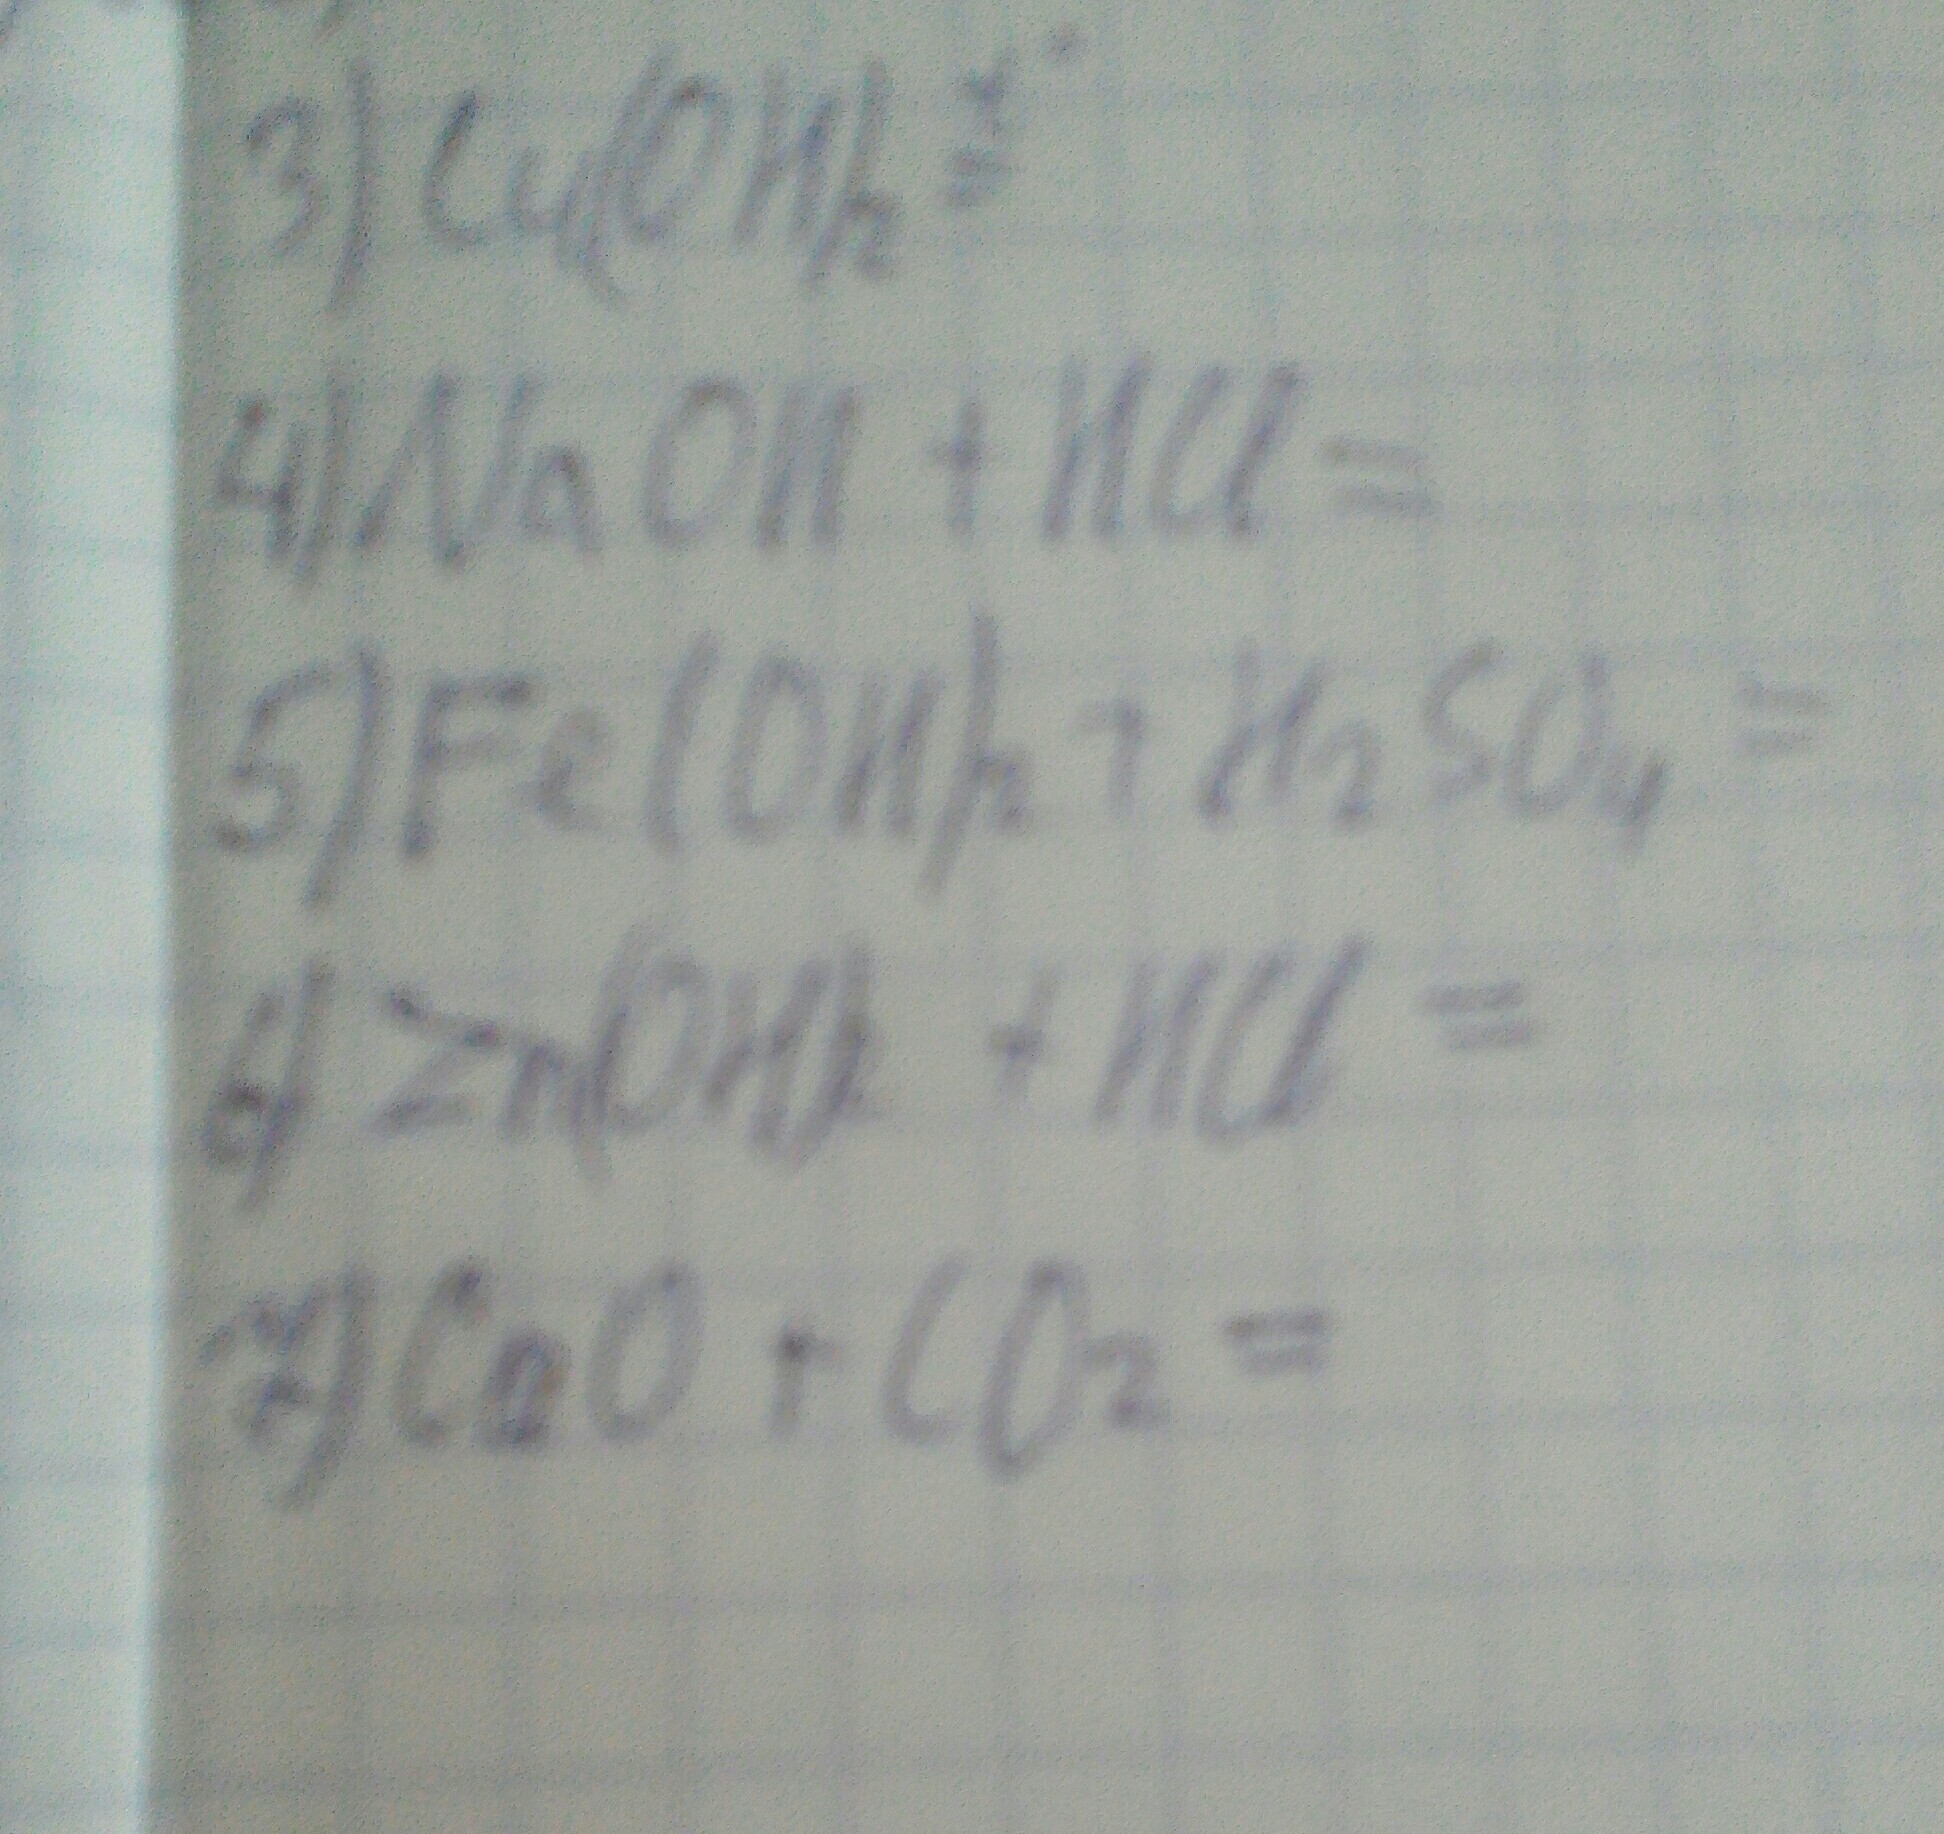 3) Cu(OH)2 =t°
4) NaOH + HCl =
5) Fe(OH)2 + H2SO4 =
6) Zn(OH)2 + HCl =
7) CaO + CO2 =